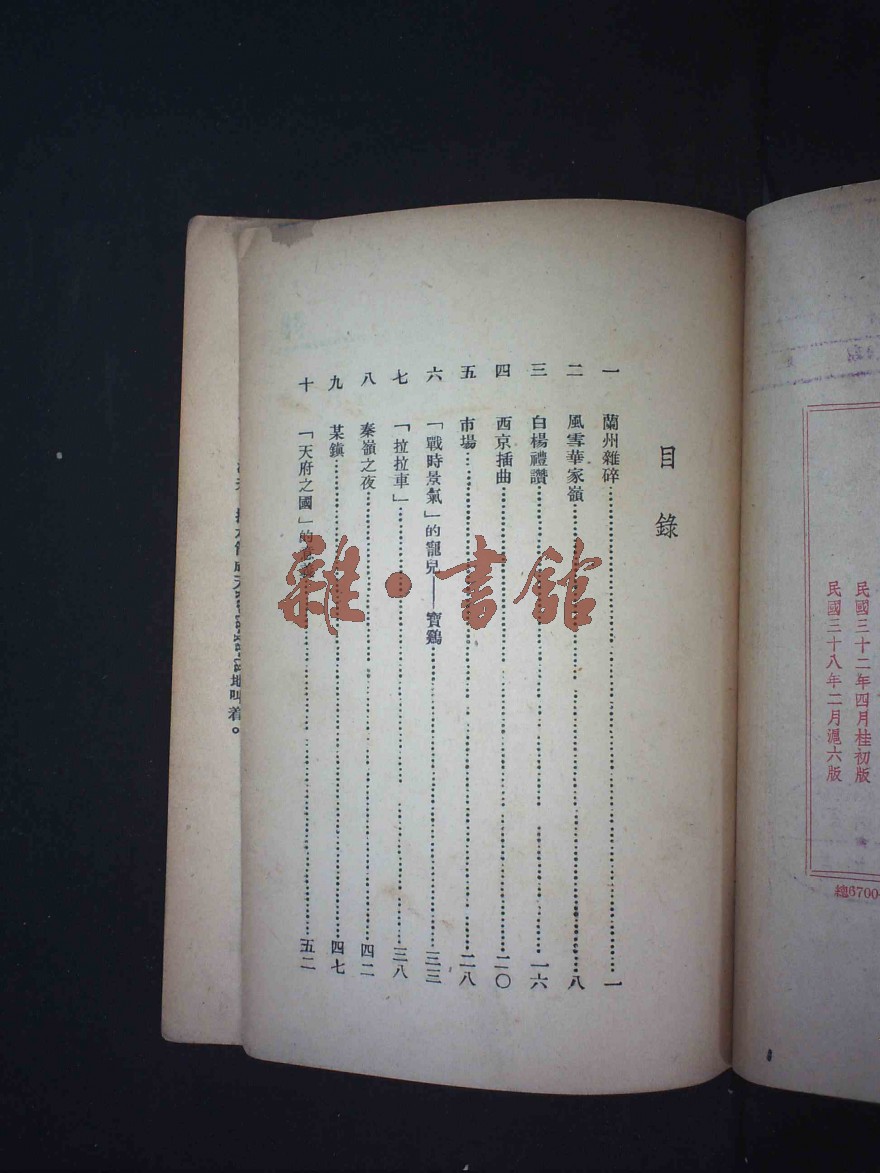 民國三十二年四月桂初版
民國三十八年二月滬六版
總6700
目錄
一 蘭州雜碎 一
二 風雪華家嶺 八
三 白楊禮讚 一六
四 西京插曲 二〇
五 市場 二八
六 「戰時景氣」的寵兒——寶鷄 三三
七 「拉拉車」 三八
八 秦嶺之夜 四二
九 某鎮 四七
十 「天府之國」的意義 五二
雜·書館
地叫着。